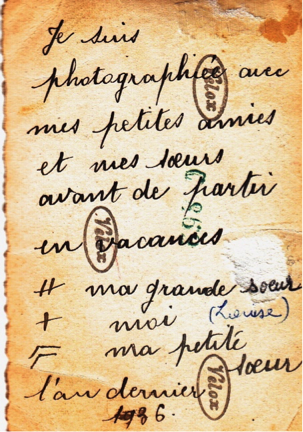 Je suis
photographiée avec
mes petites amies
et mes sœurs
avant de partir
en vacances
# ma grande soeur
+ moi (Louise)
ma petite
sœur
l'an dernier
1936.
Velox
Velox
Velox